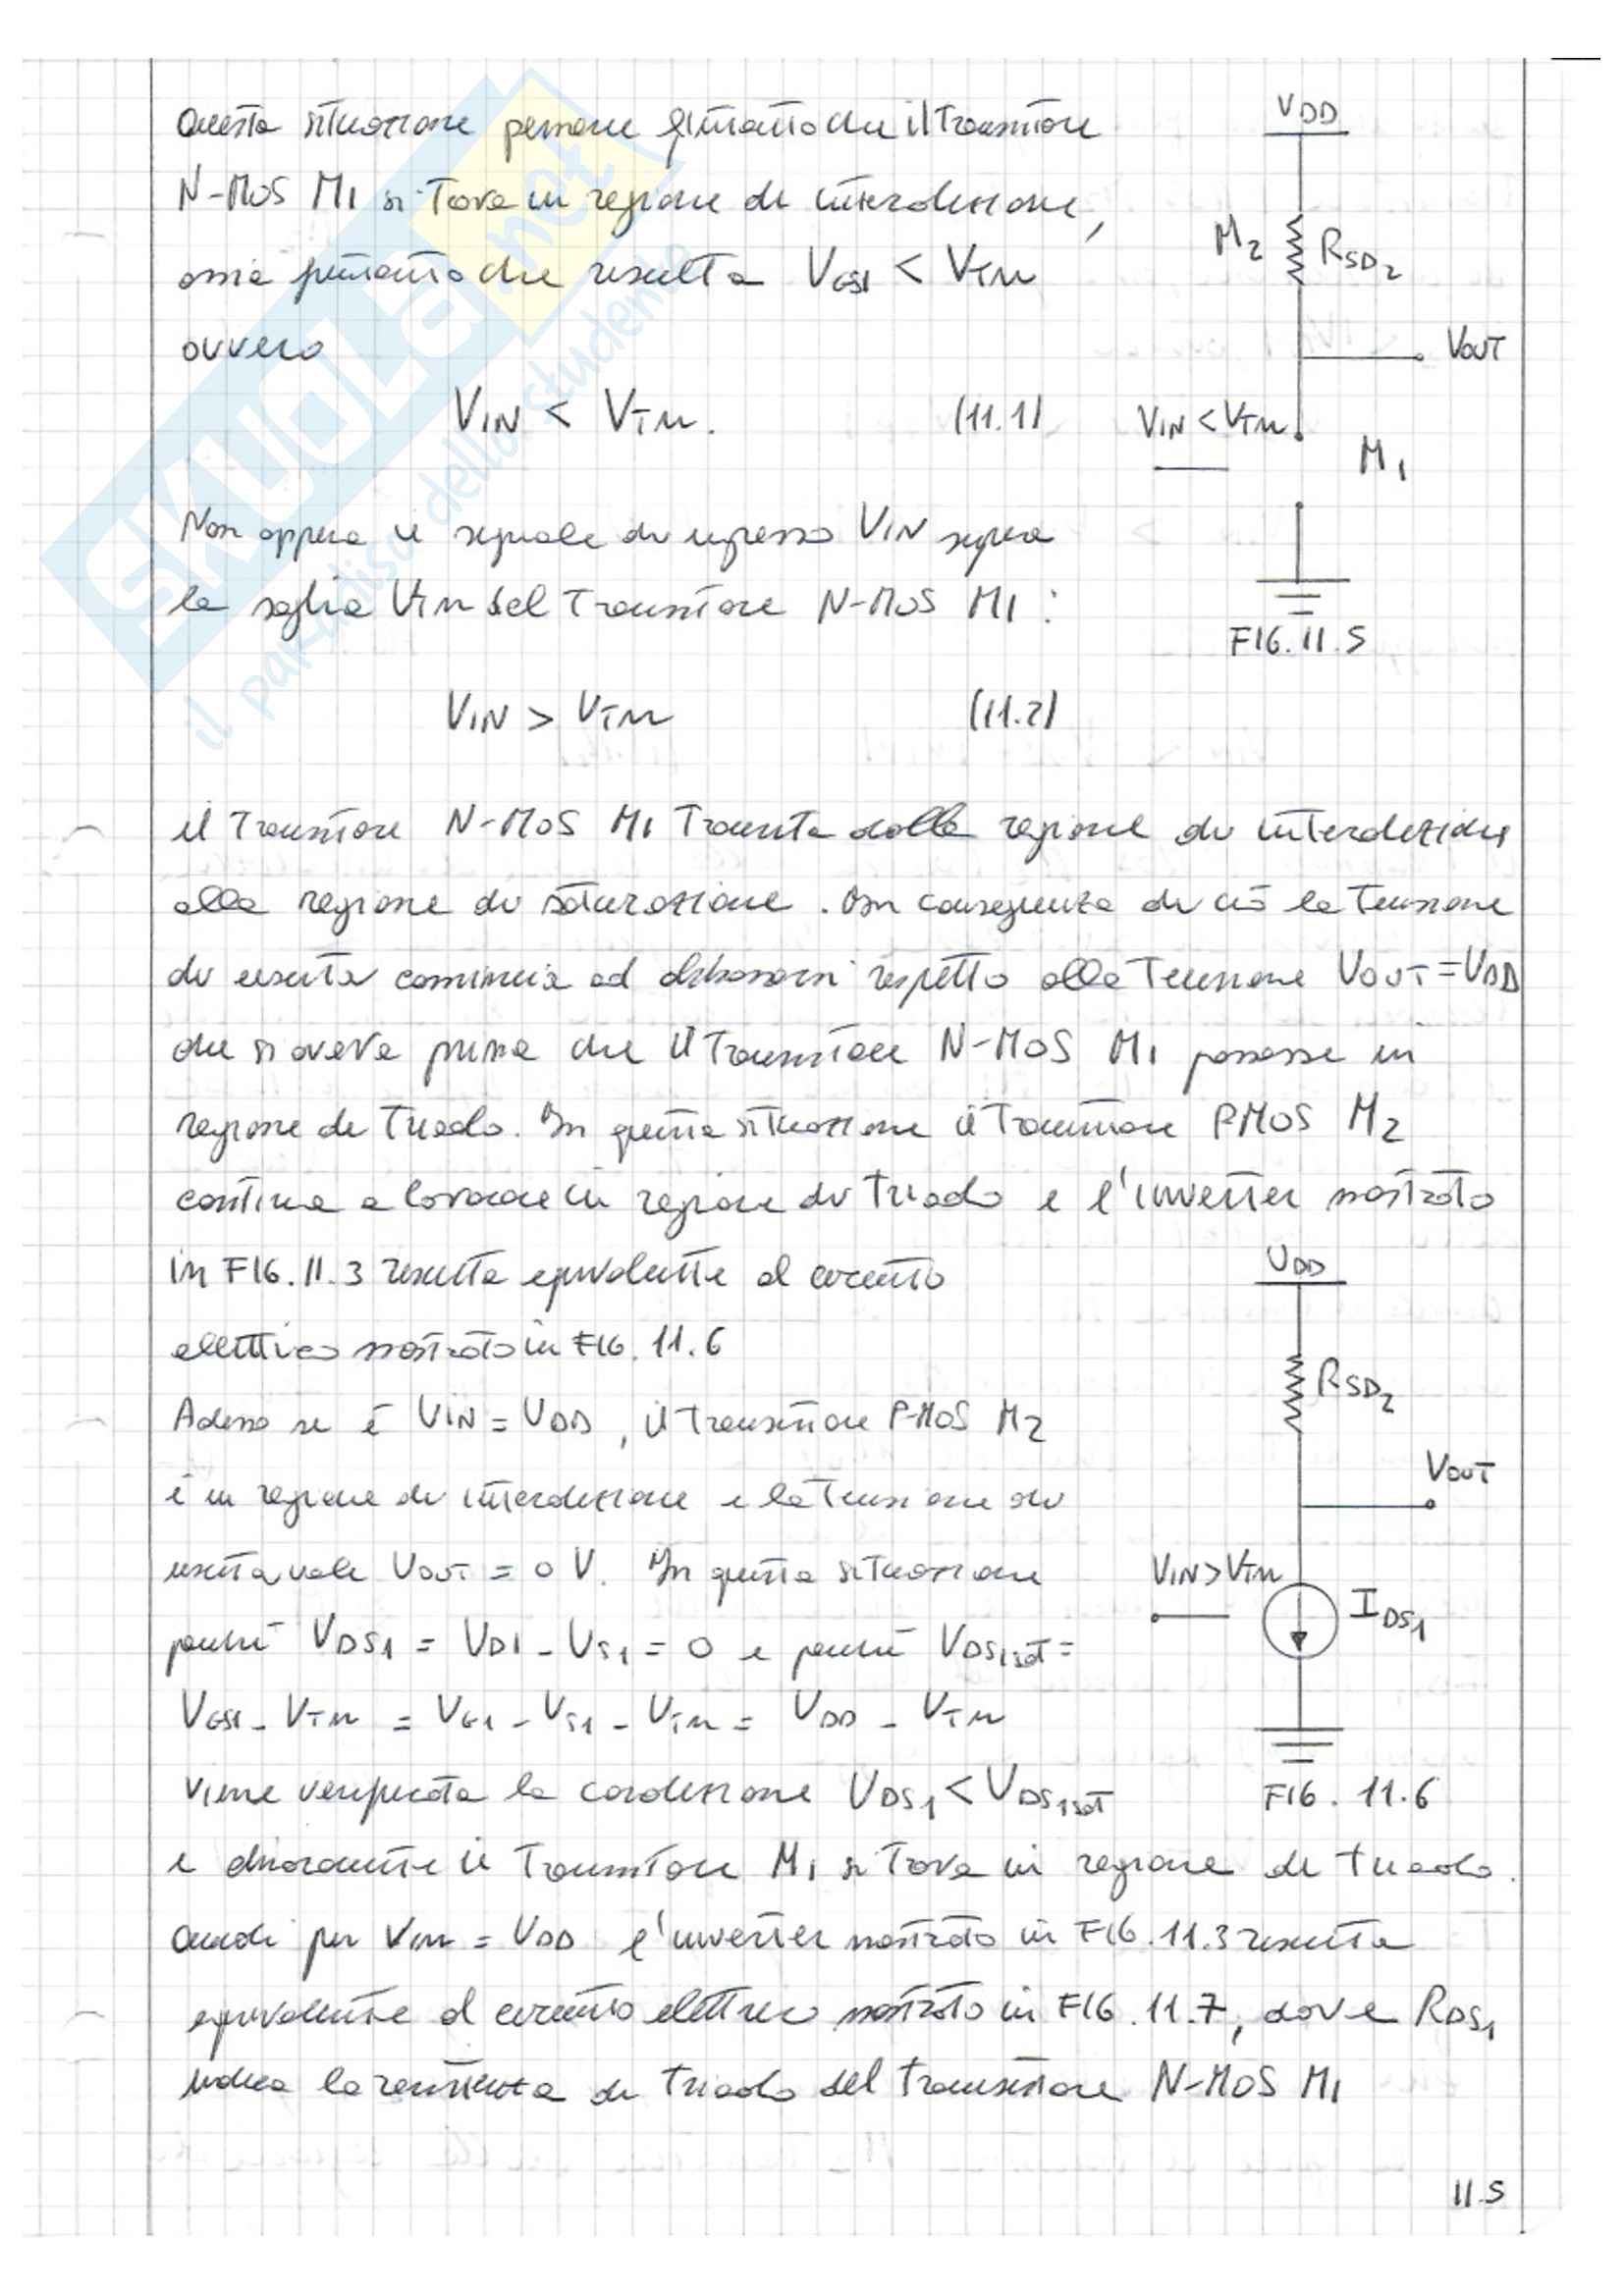 Questa situazione permane fintanto che il transistore
N-MOS M1 si trova in regione di interdizione,
ossia fintanto che risulta VGS1 < VTn
ovvero
VIN < VTn. (11.1)
Non appena il segnale di ingresso VIN supera
la soglia VTn del transistore N-MOS M1 :
VIN > VTn (11.2)
il transistore N-MOS M1 transita dalla regione di interdizione
alla regione di saturazione. In conseguenza di ciò la tensione
di uscita comincia ad abbassarsi rispetto alla tensione VOUT = VDD
che si aveva prima che il transistore N-MOS M1 passasse in
regione di triodo. In questa situazione il transistore PMOS M2
continua a lavorare in regione di triodo e l'inverter mostrato
in FIG. 11.3 risulta equivalente al circuito
elettrico mostrato in FIG. 11.6
Adesso se è VIN = VDD, il transistore P-MOS M2
è in regione di interdizione e la tensione di
uscita vale VOUT = 0 V. In questa situazione
poiché VDS1 = VD1 - VS1 = 0 e poiché VDS1sat =
VGS1 - VTn = VG1 - VS1 - VTn = VDD - VTn
viene verificata la condizione VDS1 < VDS1sat
e chiaramente il transistore M1 si trova in regione di triodo.
Quindi per VIN = VDD l'inverter mostrato in FIG. 11.3 risulta
equivalente al circuito elettrico mostrato in FIG. 11.7, dove RDS1
indica la resistenza di triodo del transistore N-MOS M1
VDD
M2 RSD2
VOUT
VIN < VTn
M1
FIG. 11.5
VDD
RSD2
VOUT
VIN > VTn
IDS1
FIG. 11.6
11.5
SKUOLa.net
il paradiso dello studente